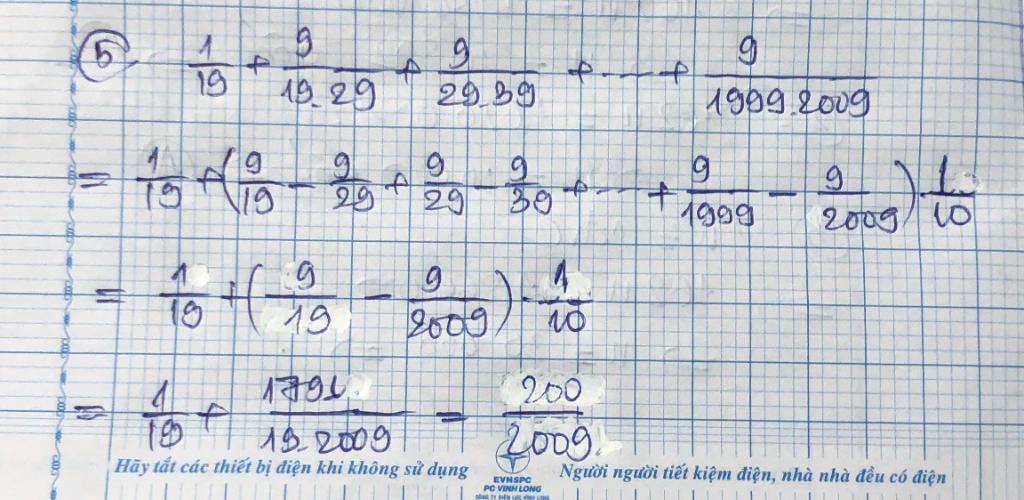 5 1/19 + 9/19.29 + 9/29.39 + --- + 9/1999.2009
= 1/19 + (9/19 - 9/29 + 9/29 - 9/39 + --- + 9/1999 - 9/2009) . 1/10
= 1/19 + (9/19 - 9/2009) . 1/10
= 1/19 + 1791/19.2009 = 200/2009
Hãy tắt các thiết bị điện khi không sử dụng
EVNSPC
PC VINH LONG
CÔNG TY ĐIỆN LỰC VĨNH LONG
Người người tiết kiệm điện, nhà nhà đều có điện